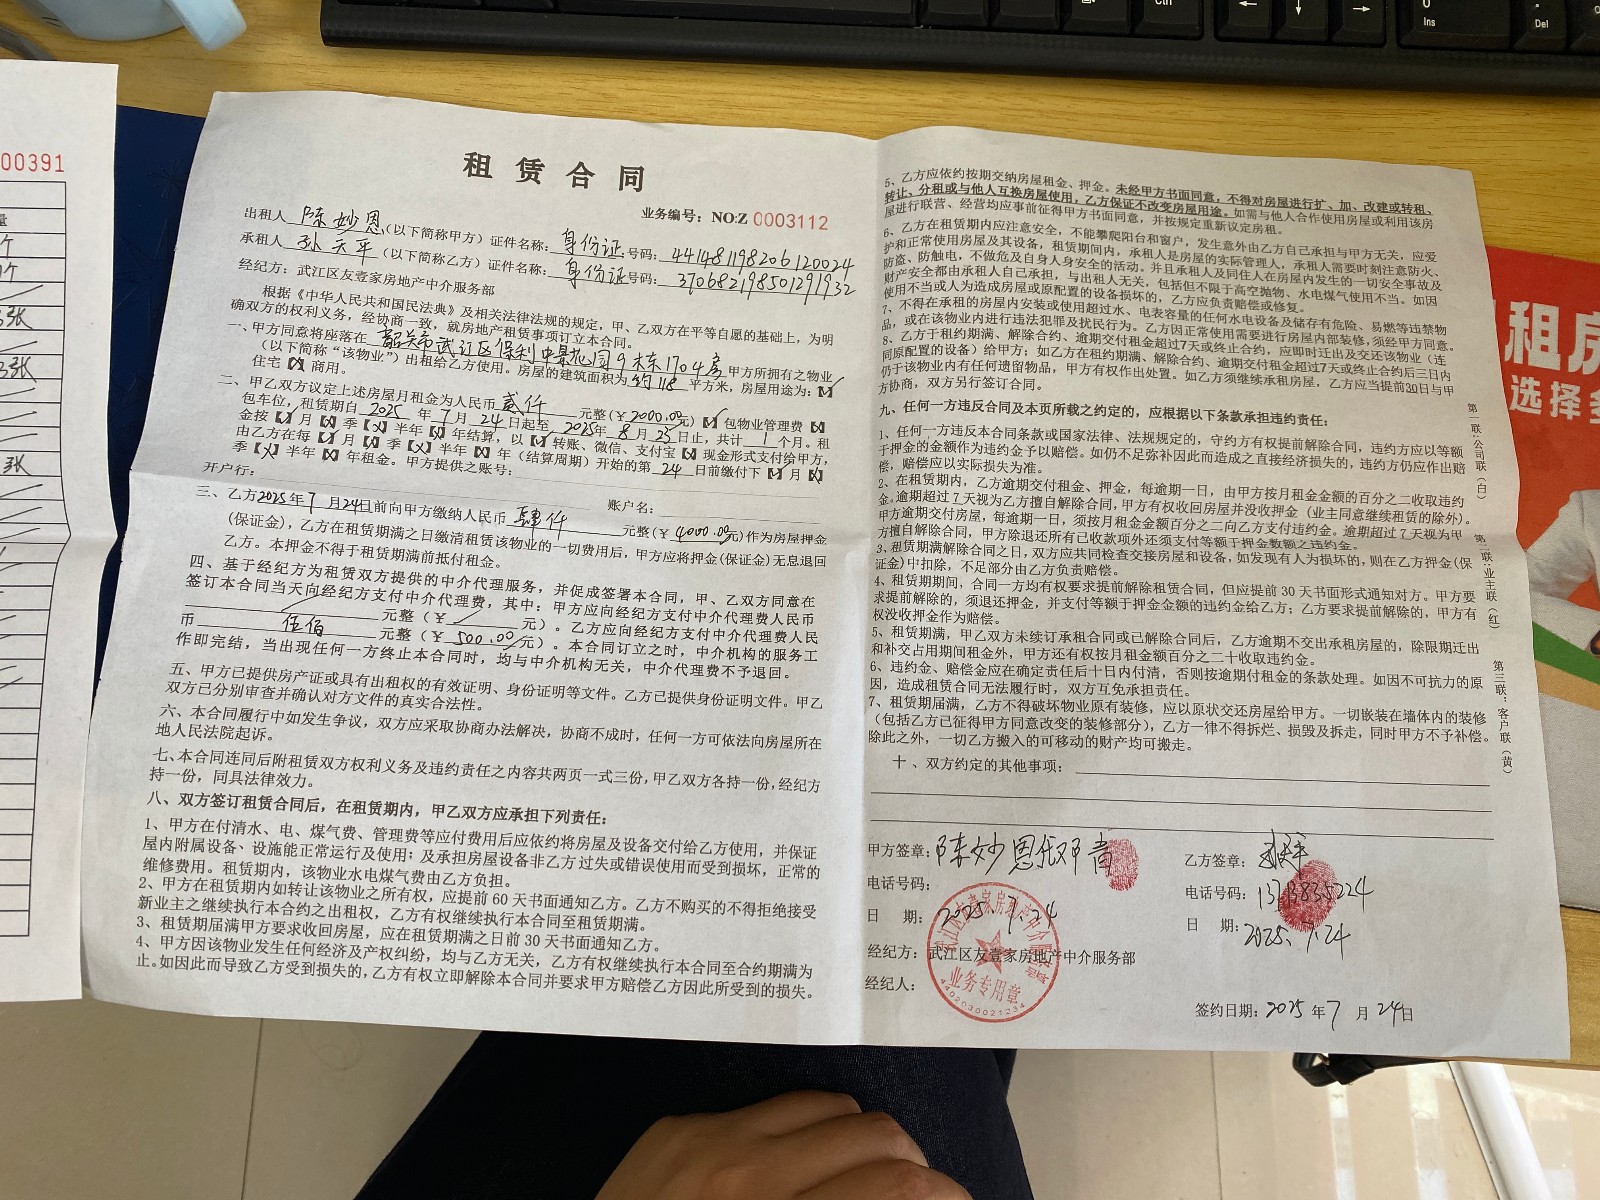 00391
租赁合同
业务编号：NO:Z 0003112
出租人 陈妙恩 (以下简称甲方) 证件名称：身份证 号码：441481198206120024
承租人 孙天平 (以下简称乙方) 证件名称：身份证 号码：370682198501291932
经纪方：武江区友壹家房地产中介服务部
根据《中华人民共和国民法典》及相关法律法规的规定，甲、乙双方在平等自愿的基础上，为明
确双方的权利义务，经协商一致，就房地产租赁事项订立本合同。
一、甲方同意将座落在 韶关市武江区保利中景花园9栋1704房 甲方所拥有之物业
(以下简称“该物业”)出租给乙方使用。房屋的建筑面积为 约118 平方米，房屋用途为：【✓】
住宅【×】商用。
二、甲乙双方议定上述房屋月租金为人民币 贰仟 元整(￥2000.00元)【✓】包物业管理费【×】
包车位，租赁期自 2025 年 7 月 24 日起至 2025 年 8 月 23 日止，共计 1 个月。租
金按【✓】月【×】季【×】半年【×】年结算，以【✓】转账、微信、支付宝【×】现金形式支付给甲方，
由乙方在每【✓】月【×】季【×】半年【×】年(结算周期)开始的第 24 日前缴付下【✓】月【×】
季【×】半年【×】年租金。甲方提供之账号：
开户行： 账户名：
三、乙方2025年7月24日前向甲方缴纳人民币 肆仟 元整(￥4000.00元)作为房屋押金
(保证金)，乙方在租赁期满之日缴清租赁该物业的一切费用后，甲方应将押金(保证金)无息退回
乙方。本押金不得于租赁期满前抵付租金。
四、基于经纪方为租赁双方提供的中介代理服务，并促成签署本合同，甲、乙双方同意在
签订本合同当天向经纪方支付中介代理费，其中：甲方应向经纪方支付中介代理费人民币
元整(￥ 元)。乙方应向经纪方支付中介代理费人民
币 伍佰 元整(￥ 500.00 元)。本合同订立之时，中介机构的服务工
作即完结，当出现任何一方终止本合同时，均与中介机构无关，中介代理费不予退回。
五、甲方已提供房产证或具有出租权的有效证明、身份证明等文件。乙方已提供身份证明文件。甲乙
双方已分别审查并确认对方文件的真实合法性。
六、本合同履行中如发生争议，双方应采取协商办法解决，协商不成时，任何一方可依法向房屋所在
地人民法院起诉。
七、本合同连同后附租赁双方权利义务及违约责任之内容共两页一式三份，甲乙双方各持一份，经纪方
持一份，同具法律效力。
八、双方签订租赁合同后，在租赁期内，甲乙双方应承担下列责任：
1、甲方在付清水、电、煤气费、管理费等应付费用后应依约将房屋及设备交付给乙方使用，并保证
屋内附属设备、设施能正常运行及使用；及承担房屋设备非乙方过失或错误使用而受到损坏，正常的
维修费用。租赁期内，该物业水电煤气费由乙方负担。
2、甲方在租赁期内如转让该物业之所有权，应提前60天书面通知乙方。乙方不购买的不得拒绝接受
新业主之继续执行本合约之出租权，乙方有权继续执行本合同至租赁期满。
3、租赁期届满甲方要求收回房屋，应在租赁期满之日前30天书面通知乙方。
4、甲方因该物业发生任何经济及产权纠纷，均与乙方无关，乙方有权继续执行本合同至合约期满为
止。如因此而导致乙方受到损失的，乙方有权立即解除本合同并要求甲方赔偿乙方因此所受到的损失。
5、乙方应依约按期交纳房屋租金、押金。未经甲方书面同意，不得对房屋进行扩、加、改建或转租、
转让、分租或与他人互换房屋使用，乙方保证不改变房屋用途。如需与他人合作使用房屋或利用该房
屋进行联营、经营均应事前征得甲方书面同意，并按规定重新议定房租。
6、乙方在租赁期内应注意安全，不能攀爬阳台和窗户，发生意外由乙方自己承担与甲方无关，应爱
护和正常使用房屋及其设备，租赁期间内，承租人是房屋的实际管理人，承租人需要时刻注意防火、
防盗、防触电，不做危及自身人身安全的活动。并且承租人及同住人在房屋内发生的一切安全事故及
财产安全都由承租人自己承担，与出租人无关，包括但不限于高空抛物、水电煤气使用不当。如因
使用不当或人为造成房屋或原配置的设备损坏的，乙方应负责赔偿或修复。
7、不得在承租的房屋内安装或使用超过水、电表容量的任何水电设备及储存有危险、易燃等违禁物
品，或在该物业内进行违法犯罪及扰民行为。乙方因正常使用需要进行房屋内部装修，须经甲方同意。
8、乙方于租约期满、解除合约、逾期交付租金超过7天或终止合约，应即时迁出及交还该物业（连
同原配置的设备）给甲方；如乙方在租约期满、解除合约、逾期交付租金超过7天或终止合约后三日内
仍于该物业内有任何遗留物品，甲方有权作出处置。如乙方须继续承租房屋，乙方应当提前30日与甲
方协商，双方另行签订合同。
九、任何一方违反合同及本页所载之约定的，应根据以下条款承担违约责任：
1、任何一方违反本合同条款或国家法律、法规规定的，守约方有权提前解除合同，违约方应以等额
于押金的金额作为违约金予以赔偿。如仍不足弥补因此而造成之直接经济损失的，违约方仍应作出赔
偿，赔偿应以实际损失为准。
2、在租赁期内，乙方逾期交付租金、押金，每逾期一日，由甲方按月租金金额的百分之二收取违约
金。逾期超过7天视为乙方擅自解除合同，甲方有权收回房屋并没收押金（业主同意继续租赁的除外）。
甲方逾期交付房屋，每逾期一日，须按月租金金额百分之二向乙方支付违约金。逾期超过7天视为甲
方擅自解除合同，甲方除退还所有已收款项外还须支付等额于押金数额之违约金。
3、租赁期满解除合同之日，双方应共同检查交接房屋和设备，如发现有人为损坏的，则在乙方押金(保
证金)中扣除，不足部分由乙方负责赔偿。
4、租赁期期间，合同一方均有权要求提前解除租赁合同，但应提前30天书面形式通知对方。甲方要
求提前解除的，须退还押金，并支付等额于押金金额的违约金给乙方；乙方要求提前解除的，甲方有
权没收押金作为赔偿。
5、租赁期满，甲乙双方未续订承租合同或已解除合同后，乙方逾期不交出承租房屋的，除限期迁出
和补交占用期间租金外，甲方还有权按月租金额百分之二十收取违约金。
6、违约金、赔偿金应在确定责任后十日内付清，否则按逾期付租金的条款处理。如因不可抗力的原
因，造成租赁合同无法履行时，双方互免承担责任。
7、租赁期届满，乙方不得破坏物业原有装修，应以原状交还房屋给甲方。一切嵌装在墙体内的装修
（包括乙方已征得甲方同意改变的装修部分），乙方一律不得拆烂、损毁及拆走，同时甲方不予补偿。
除此之外，一切乙方搬入的可移动的财产均可搬走。
十、双方约定的其他事项：
甲方签章：陈妙恩 乙方签章：
电话号码： 电话号码：
日 期：2025 7 24 日 期：2025.7.24
经纪方：武江区友壹家房地产中介服务部
经纪人：
业务专用章
签约日期：2025年7月24日
第一联：公司联（白）
第二联：业主联（红）
第三联：客户联（黄）
租房
选择